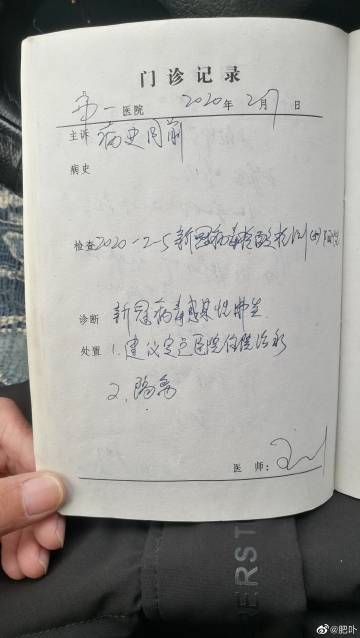 门诊记录
市一医院 2020年2月7日
主诉 病史同前
病史
检查 2020-2-5 新冠病毒核酸检测(+)阳性
诊断 新冠病毒感染性肺炎
处置 1. 建议定点医院住院治疗
2. 隔离
医师:
ERST
@肥卟